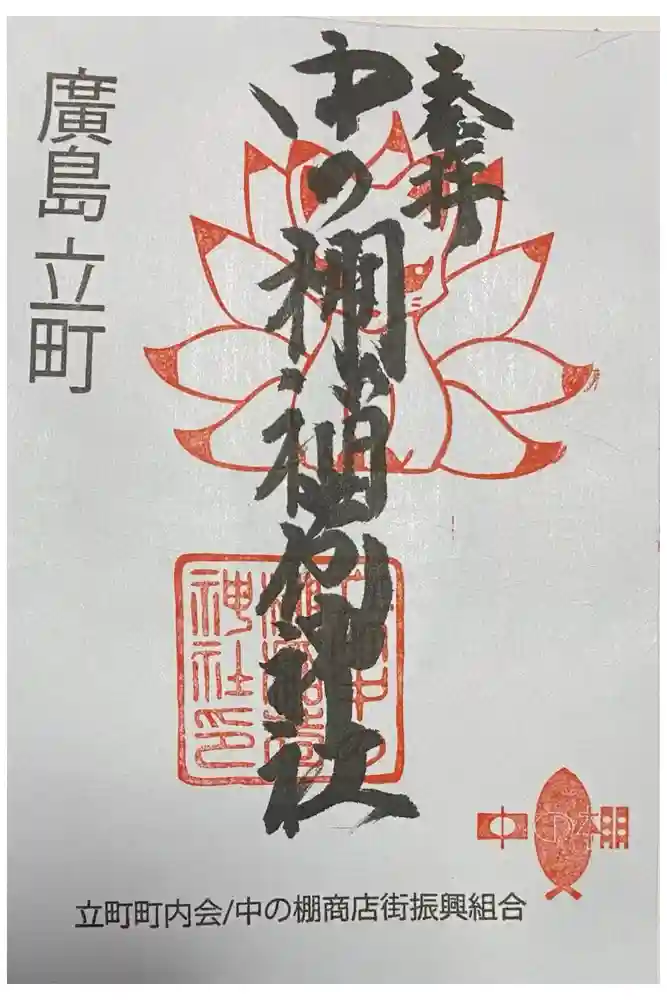 奉拝
中の棚稲荷神社
廣島立町
神社印
中の棚
立町町内会/中の棚商店街振興組合